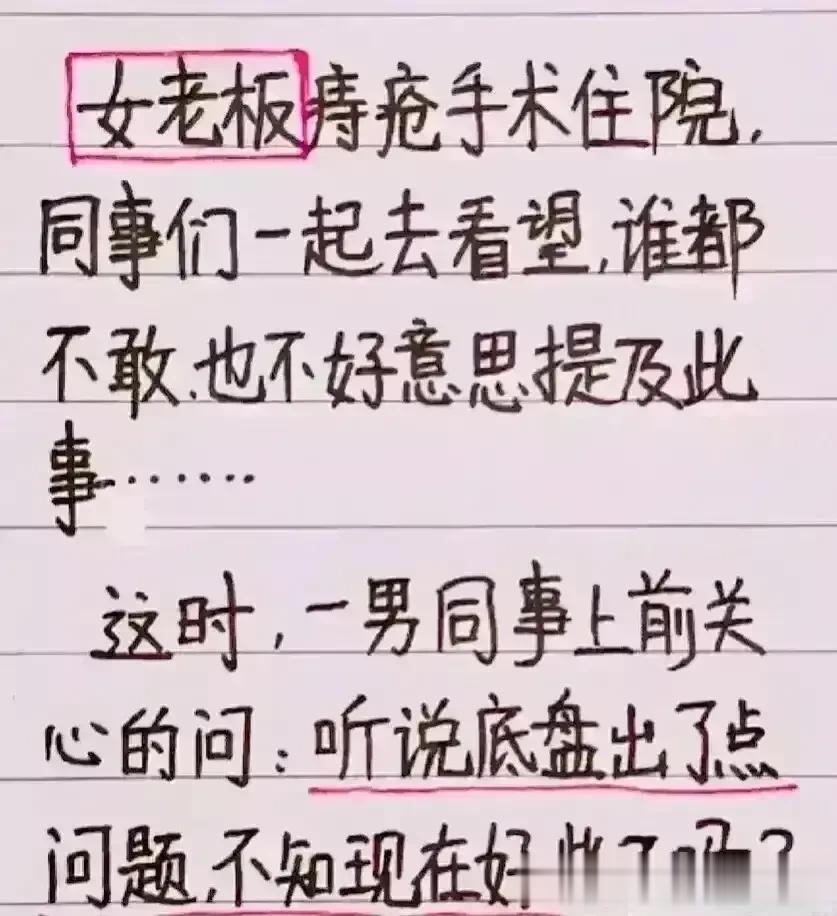 女老板痔疮手术住院,
同事们一起去看望,谁都
不敢、也不好意思提及此
事……
这时,一男同事上前关
心的问:听说底盘出了点
问题,不知现在好些了吗?